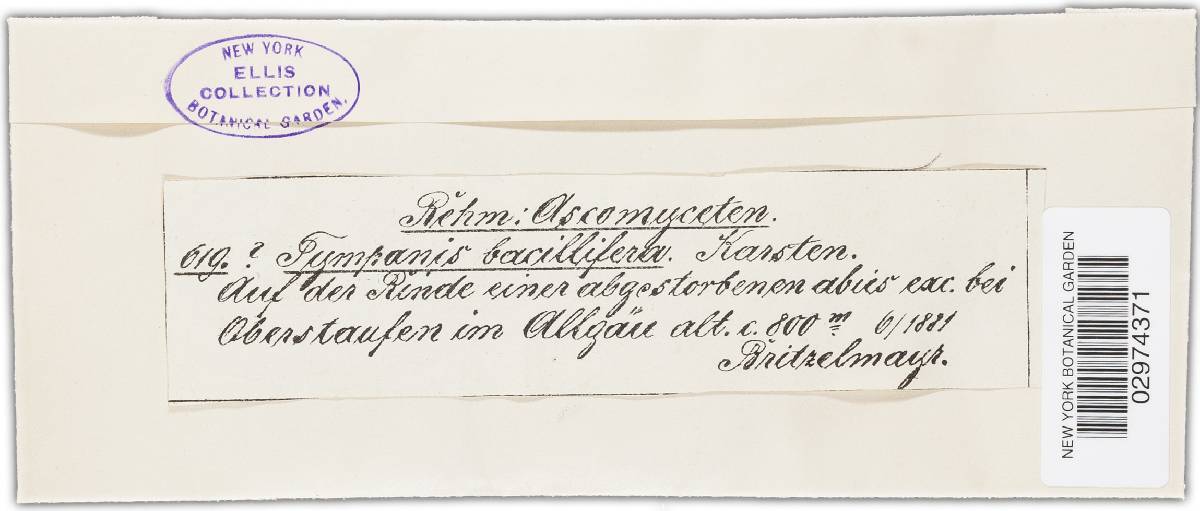 NEW YORK
ELLIS
COLLECTION
BOTANICAL GARDEN.
Rehm: Ascomyceten.
619.? Tympanis bacillifera. Karsten.
Auf der Rinde einer abgestorbenen abies exc. bei
Oberstaufen im Allgäu alt. c. 800 m 6/1881
Britzelmayr.
NEW YORK BOTANICAL GARDEN
02974371